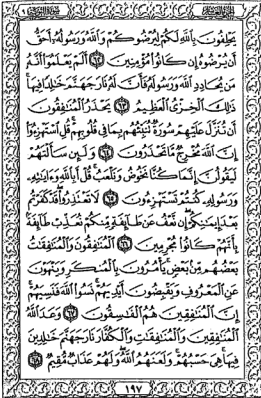 الجزء العاشر سورة التوبة
يَحْلِفُونَ بِاللَّهِ لَكُمْ لِيُرْضُوكُمْ وَاللَّهُ وَرَسُولُهُ أَحَقُّ
أَن يُرْضُوهُ إِن كَانُوا مُؤْمِنِينَ ٦٢ أَلَمْ يَعْلَمُوا أَنَّهُ
مَن يُحَادِدِ اللَّهَ وَرَسُولَهُ فَأَنَّ لَهُ نَارَ جَهَنَّمَ خَالِدًا فِيهَا
ذَٰلِكَ الْخِزْيُ الْعَظِيمُ ٦٣ يَحْذَرُ الْمُنَافِقُونَ
أَن تُنَزَّلَ عَلَيْهِمْ سُورَةٌ تُنَبِّئُهُم بِمَا فِي قُلُوبِهِمْ قُلِ اسْتَهْزِئُوا
إِنَّ اللَّهَ مُخْرِجٌ مَّا تَحْذَرُونَ ٦٤ وَلَئِن سَأَلْتَهُمْ
لَيَقُولُنَّ إِنَّمَا كُنَّا نَخُوضُ وَنَلْعَبُ قُلْ أَبِاللَّهِ وَآيَاتِهِ
وَرَسُولِهِ كُنتُمْ تَسْتَهْزِئُونَ ٦٥ لَا تَعْتَذِرُوا قَدْ كَفَرْتُم
بَعْدَ إِيمَانِكُمْ إِن نَّعْفُ عَن طَائِفَةٍ مِّنكُمْ نُعَذِّبْ طَائِفَةً
بِأَنَّهُمْ كَانُوا مُجْرِمِينَ ٦٦ الْمُنَافِقُونَ وَالْمُنَافِقَاتُ
بَعْضُهُم مِّن بَعْضٍ يَأْمُرُونَ بِالْمُنكَرِ وَيَنْهَوْنَ
عَنِ الْمَعْرُوفِ وَيَقْبِضُونَ أَيْدِيَهُمْ نَسُوا اللَّهَ فَنَسِيَهُمْ
إِنَّ الْمُنَافِقِينَ هُمُ الْفَاسِقُونَ ٦٧ وَعَدَ اللَّهُ
الْمُنَافِقِينَ وَالْمُنَافِقَاتِ وَالْكُفَّارَ نَارَ جَهَنَّمَ خَالِدِينَ
فِيهَا هِيَ حَسْبُهُمْ وَلَعَنَهُمُ اللَّهُ وَلَهُمْ عَذَابٌ مُّقِيمٌ ٦٨
١٩٧